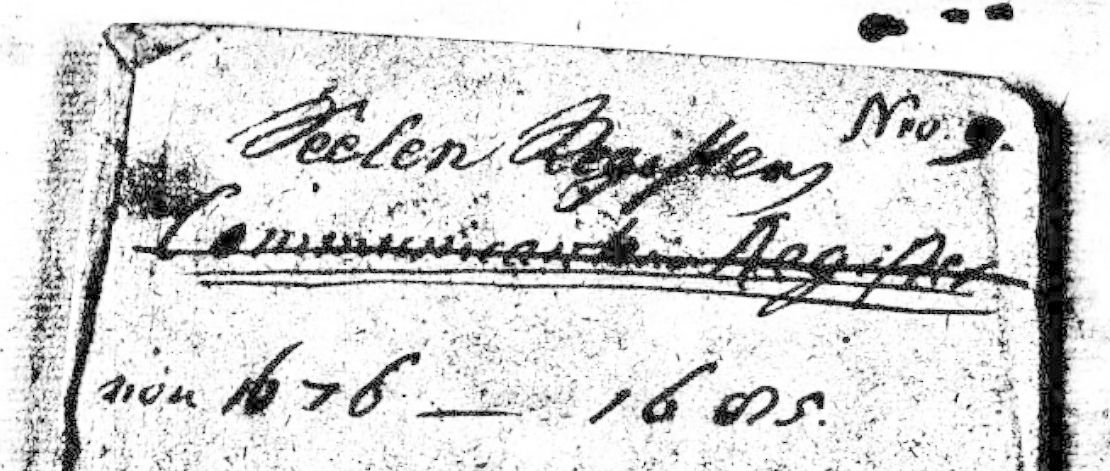 Nro 9.
Seelen Register
Communicanten Register
von 1676 — 1685.